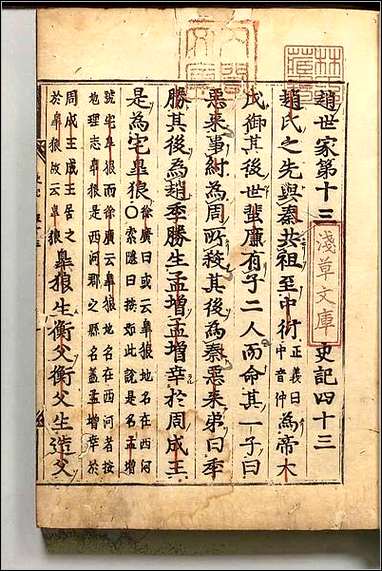 趙世家第十三 史記四十三
趙氏之先與秦共祖至中衍正義曰中音仲為帝大
戊御其後世蜚廉有子二人而命其一子曰
惡來事紂為周所殺其後為秦惡來弟曰季
勝其後為趙季勝生孟增孟增幸於周成王
是為宅皐狼徐廣曰或云皐狼地名在西河○索隱曰按如此說是名孟增
號宅皐狼而徐廣云皐狼地名在西河者按
地理志皐狼是西河郡之縣名蓋孟增幸於
周成王成王居之於皐狼故云皐狼皐狼生衡父衡父生造父
淺草文庫